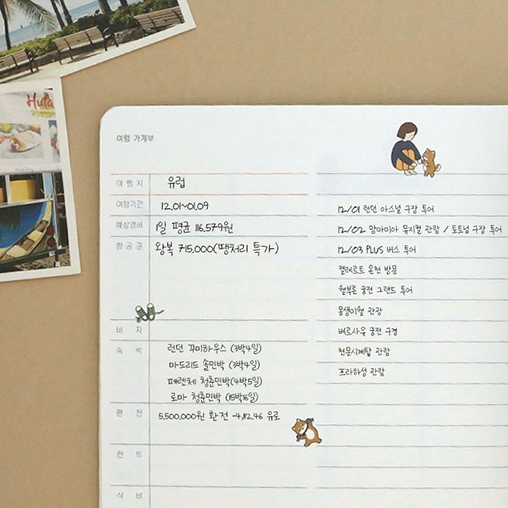 Hula
여행 가계부
여 행 지 유럽
여행기간 12.01~01.09
예상경비 1일 평균 116,579원
항 공 권 왕복 715,000(땡처리 특가)
비 자
숙 박 런던 꾸미하우스 (3박4일)
마드리드 솔민박 (3박4일)
피렌체 청춘민박(4박5일)
로마 청춘민박 (15박16일)
환 전 5,500,000원 환전 -4,112.46 유로
렌 트
식 비
12/01 런던 아스널 구장 투어
12/02 맘마미아 뮤지컬 관람 / 토트넘 구장 투어
12/03 PLUS 버스 투어
겔레르트 온천 방문
쉔부른 궁전 그랜드 투어
몽생미쉘 관광
베르사유 궁전 구경
천문시계탑 관람
프라하성 관람